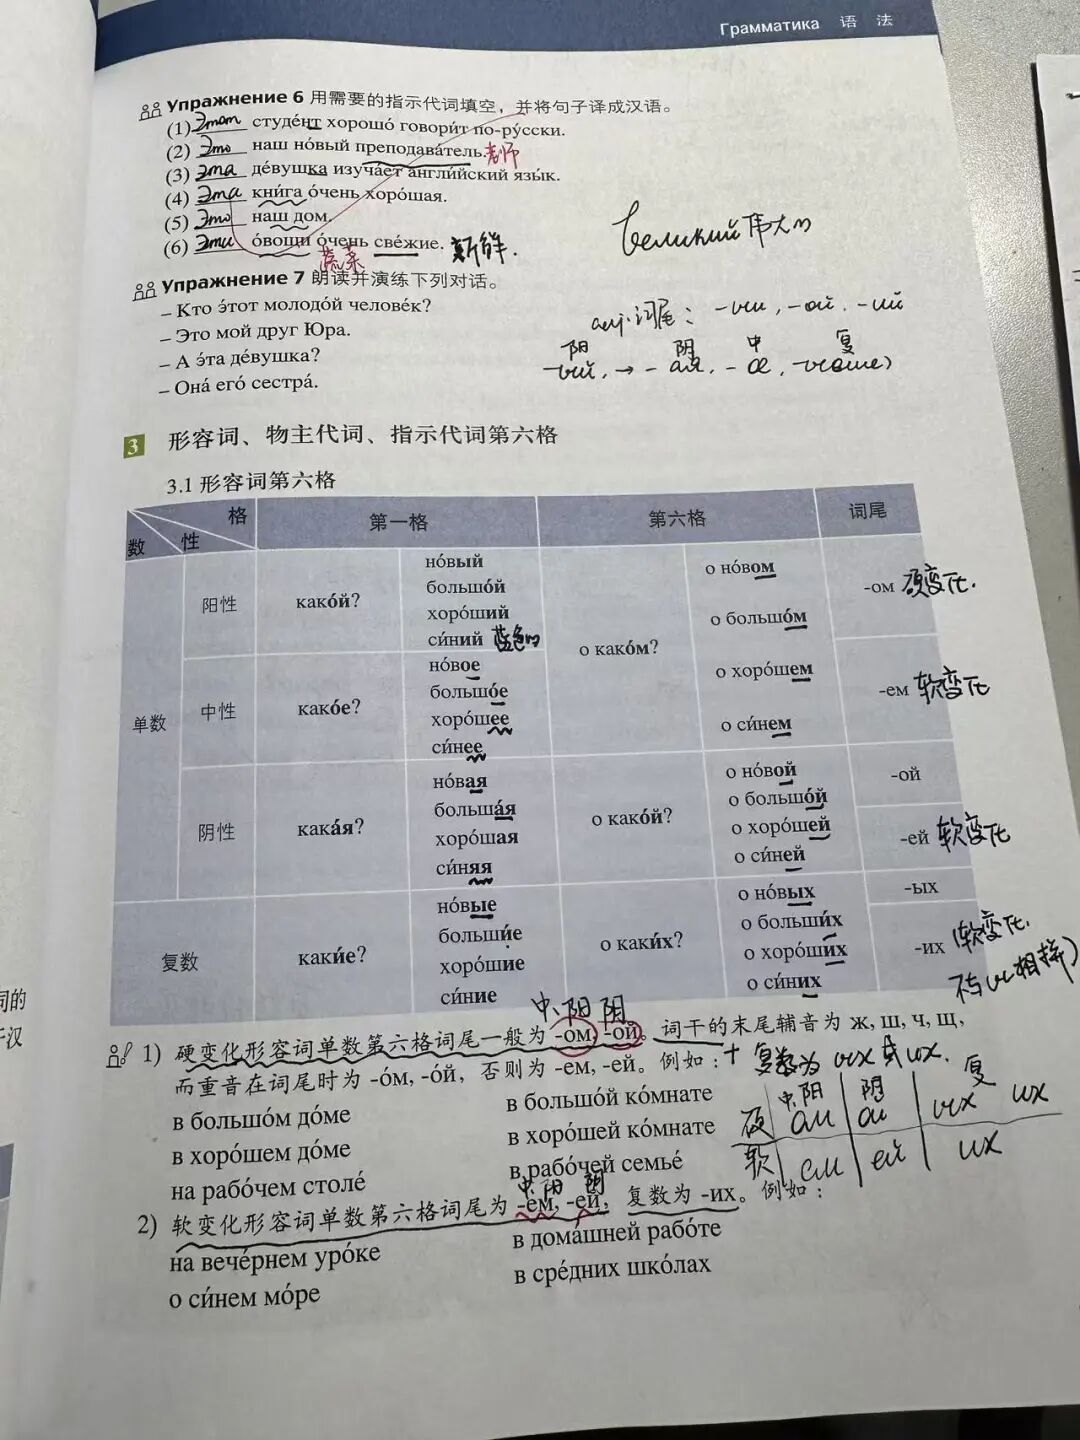 Грамматика 语 法
Упражнение 6 用需要的指示代词填空，并将句子译成汉语。
(1) Этот студе́нт хорошо́ говори́т по-ру́сски.
(2) Это наш но́вый преподава́тель. 老师
(3) Эта де́вушка изуча́ет англи́йский язы́к.
(4) Эта кни́га о́чень хоро́шая.
(5) Это наш дом.
(6) Эти о́вощи о́чень све́жие. 新鲜.
蔬菜
великий 伟大的
Упражнение 7 朗读并演练下列对话。
– Кто э́тот молодо́й челове́к?
– Это мой друг Юра.
– А э́та де́вушка?
– Она́ его́ сестра́.
adj.词尾: -ый, -ой, -ий
阳 阴 中 复
-ый, → - ая, - ое, -ые
3 形容词、物主代词、指示代词第六格
3.1 形容词第六格
格 数 性 第一格 第六格 词尾
单数
阳性 како́й?
но́вый
большо́й
хоро́ший
си́ний 蓝色的
中性 како́е?
но́вое
большо́е
хоро́шее
си́нее
о како́м?
о но́вом
о большо́м
о хоро́шем
о си́нем
-ом 硬变化.
-ем 软变化
阴性 кака́я?
но́вая
больша́я
хоро́шая
си́няя
о како́й?
о но́вой
о большо́й
о хоро́шей
о си́ней
-ой
-ей 软变化
复数 каки́е?
но́вые
больши́е
хоро́шие
си́ние
о каки́х?
о но́вых
о больши́х
о хоро́ших
о си́них
-ых
-их (软变化.
不与ы相拼)
中、阳 阴
1) 硬变化形容词单数第六格词尾一般为 -ом, -ой。词干的末尾辅音为 ж, ш, ч, щ,
而重音在词尾时为 -о́м, -о́й，否则为 -ем, -ей。例如：
+ 复数为 ых或их.
в большо́м до́ме в большо́й ко́мнате
в хоро́шем до́ме в хоро́шей ко́мнате
на рабо́чем столе́ в рабо́чей семье́
中.阳 阴 复
硬 ом ой ых их
软 ем ей их
中、阳 阴
2) 软变化形容词单数第六格词尾为 -ем, -ей，复数为 -их。例如：
на вече́рнем уро́ке в дома́шней рабо́те
о си́нем мо́ре в сре́дних шко́лах